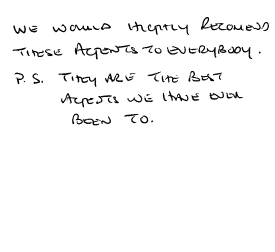 WE WOULD HIGHLY RECOMEND
THESE AGENTS TO EVERYBODY.
P.S. THEY ARE THE BEST
AGENTS WE HAVE EVER
BEEN TO.